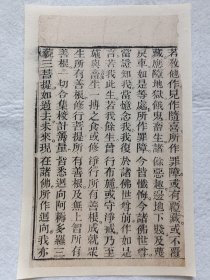 若教他作見作隨喜所作罪障或有覆藏或不覆
藏應墮地獄餓鬼畜生諸餘惡趣邊地下賤及蔑
戾車如是等處所作罪障今皆懺悔今諸佛世尊
當證知我當憶念我我復於諸佛世尊前作如是
言若我此生若我餘生曾行布施或守淨戒乃至
施與畜生一摶之食或修淨行所有善根成就眾
生所有善根修行菩提所有善根及無上智所有
善根一切合集校計籌量皆悉迴向阿耨多羅三
藐三菩提如過去未來現在諸佛所作迴向我亦